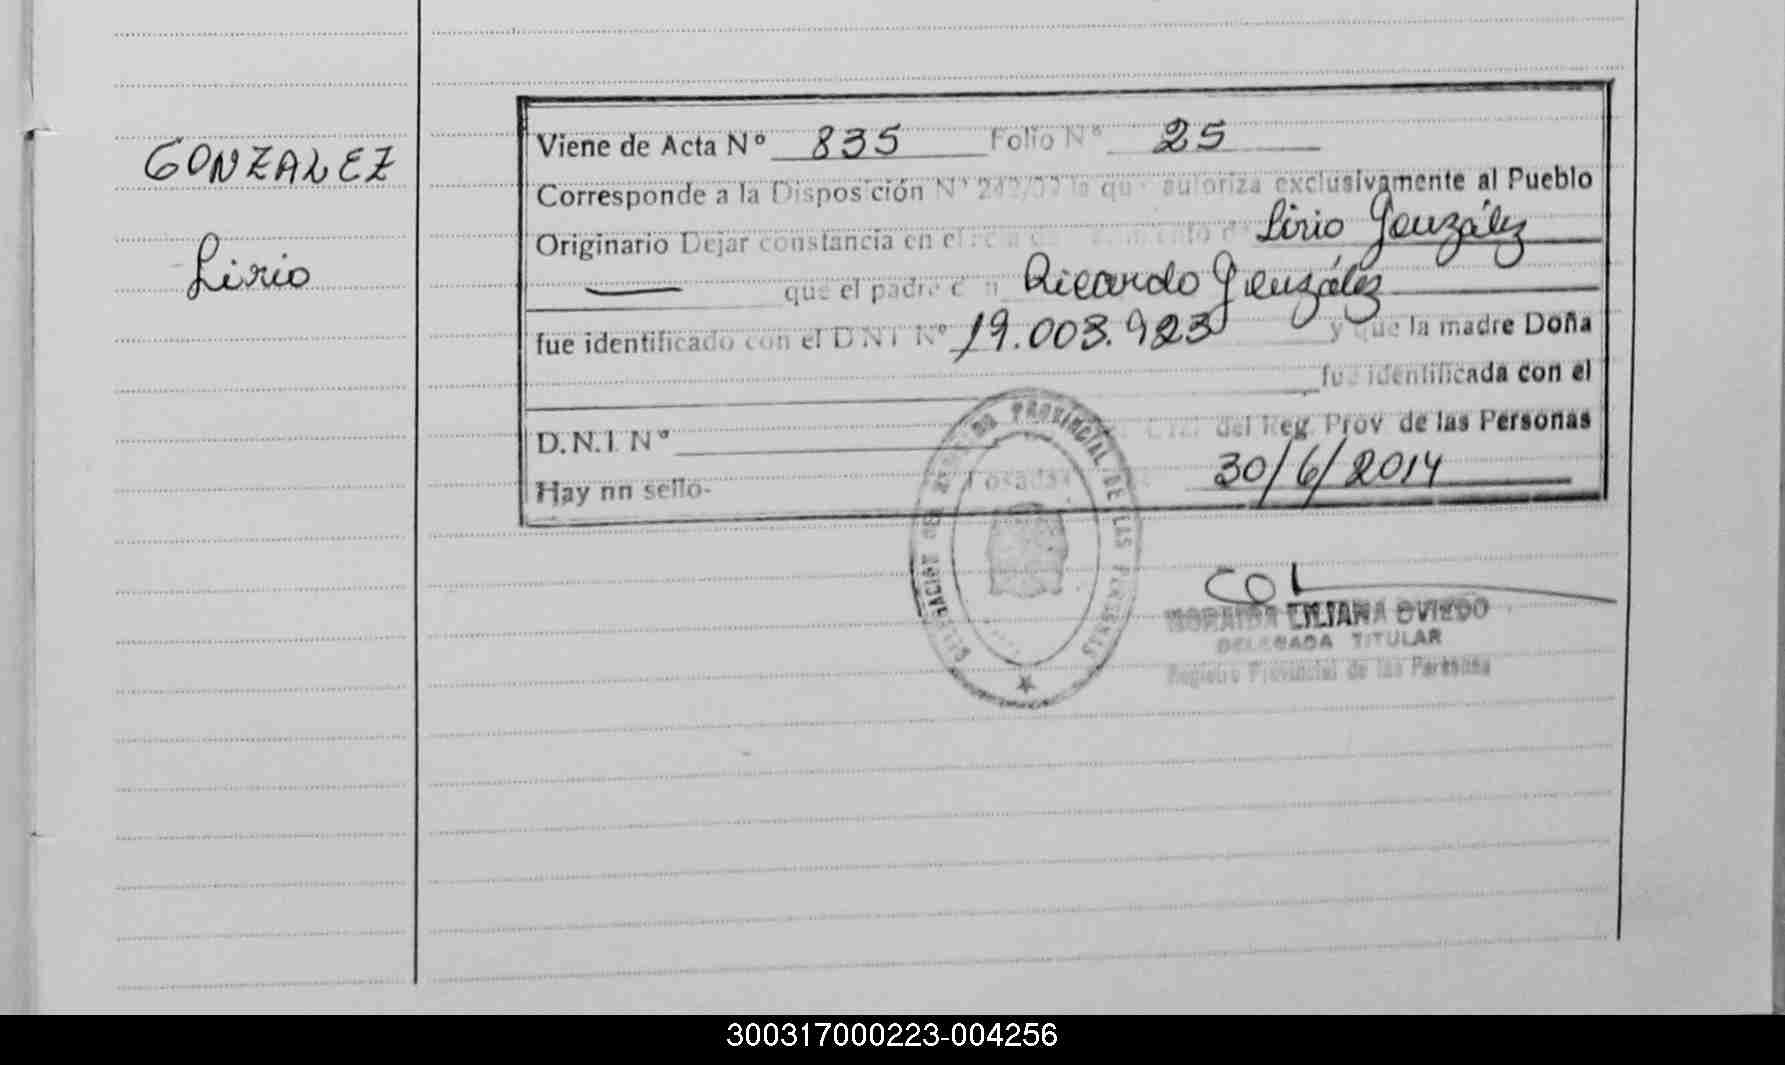 GONZALEZ
Lirio
Viene de Acta Nº 835 Folio Nº 25
Corresponde a la Disposición Nº 242/07 la que autoriza exclusivamente al Pueblo
Originario Dejar constancia en el Lirio González
— que el padre Ricardo González
fue identificado con el D N I Nº 19.003.923 y que la madre Doña
fue identificada con el
D.N.I. Nº del Reg. Prov. de las Personas
Hay nn sello- Posadas 30/6/2014
PROVINCIAL DE LAS PERSONAS
LILIANA OVIEDO
DELEGADA TITULAR
Registro Provincial de las Personas
300317000223-004256